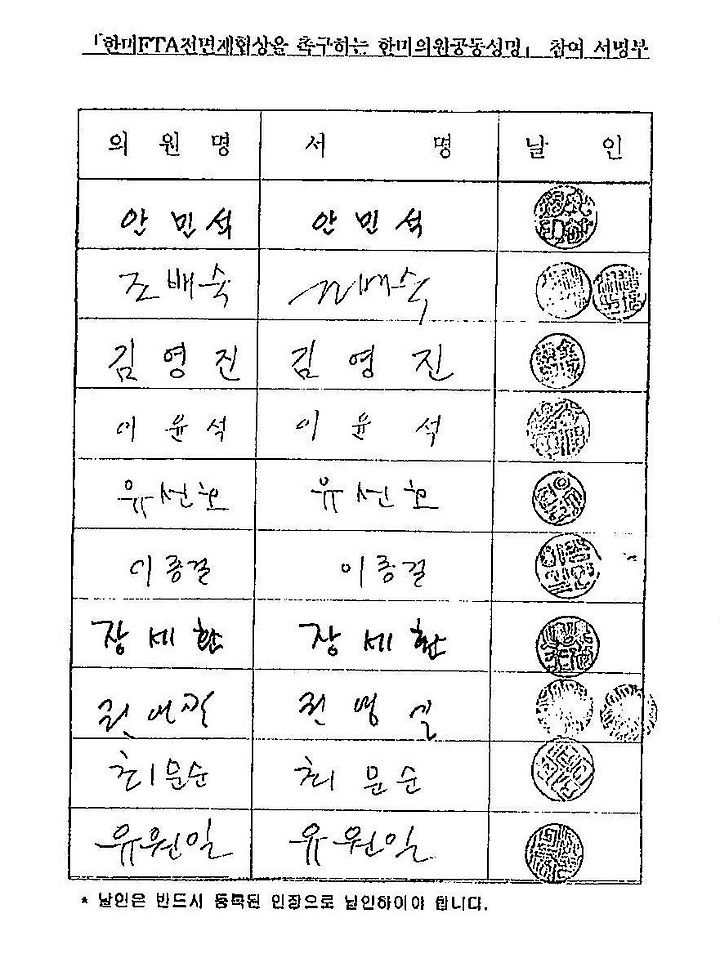 「한미FTA전면재협상을 촉구하는 한미의원공동성명」 참여 서명부
의 원 명 서 명 날 인
안민석 안민석
조배숙 조배숙
김영진 김영진
이윤석 이윤석
유선호 유선호
이종걸 이종걸
장세환 장세환
최문순 최문순
유원일 유원일
* 날인은 반드시 등록된 인장으로 날인하이야 합니다.